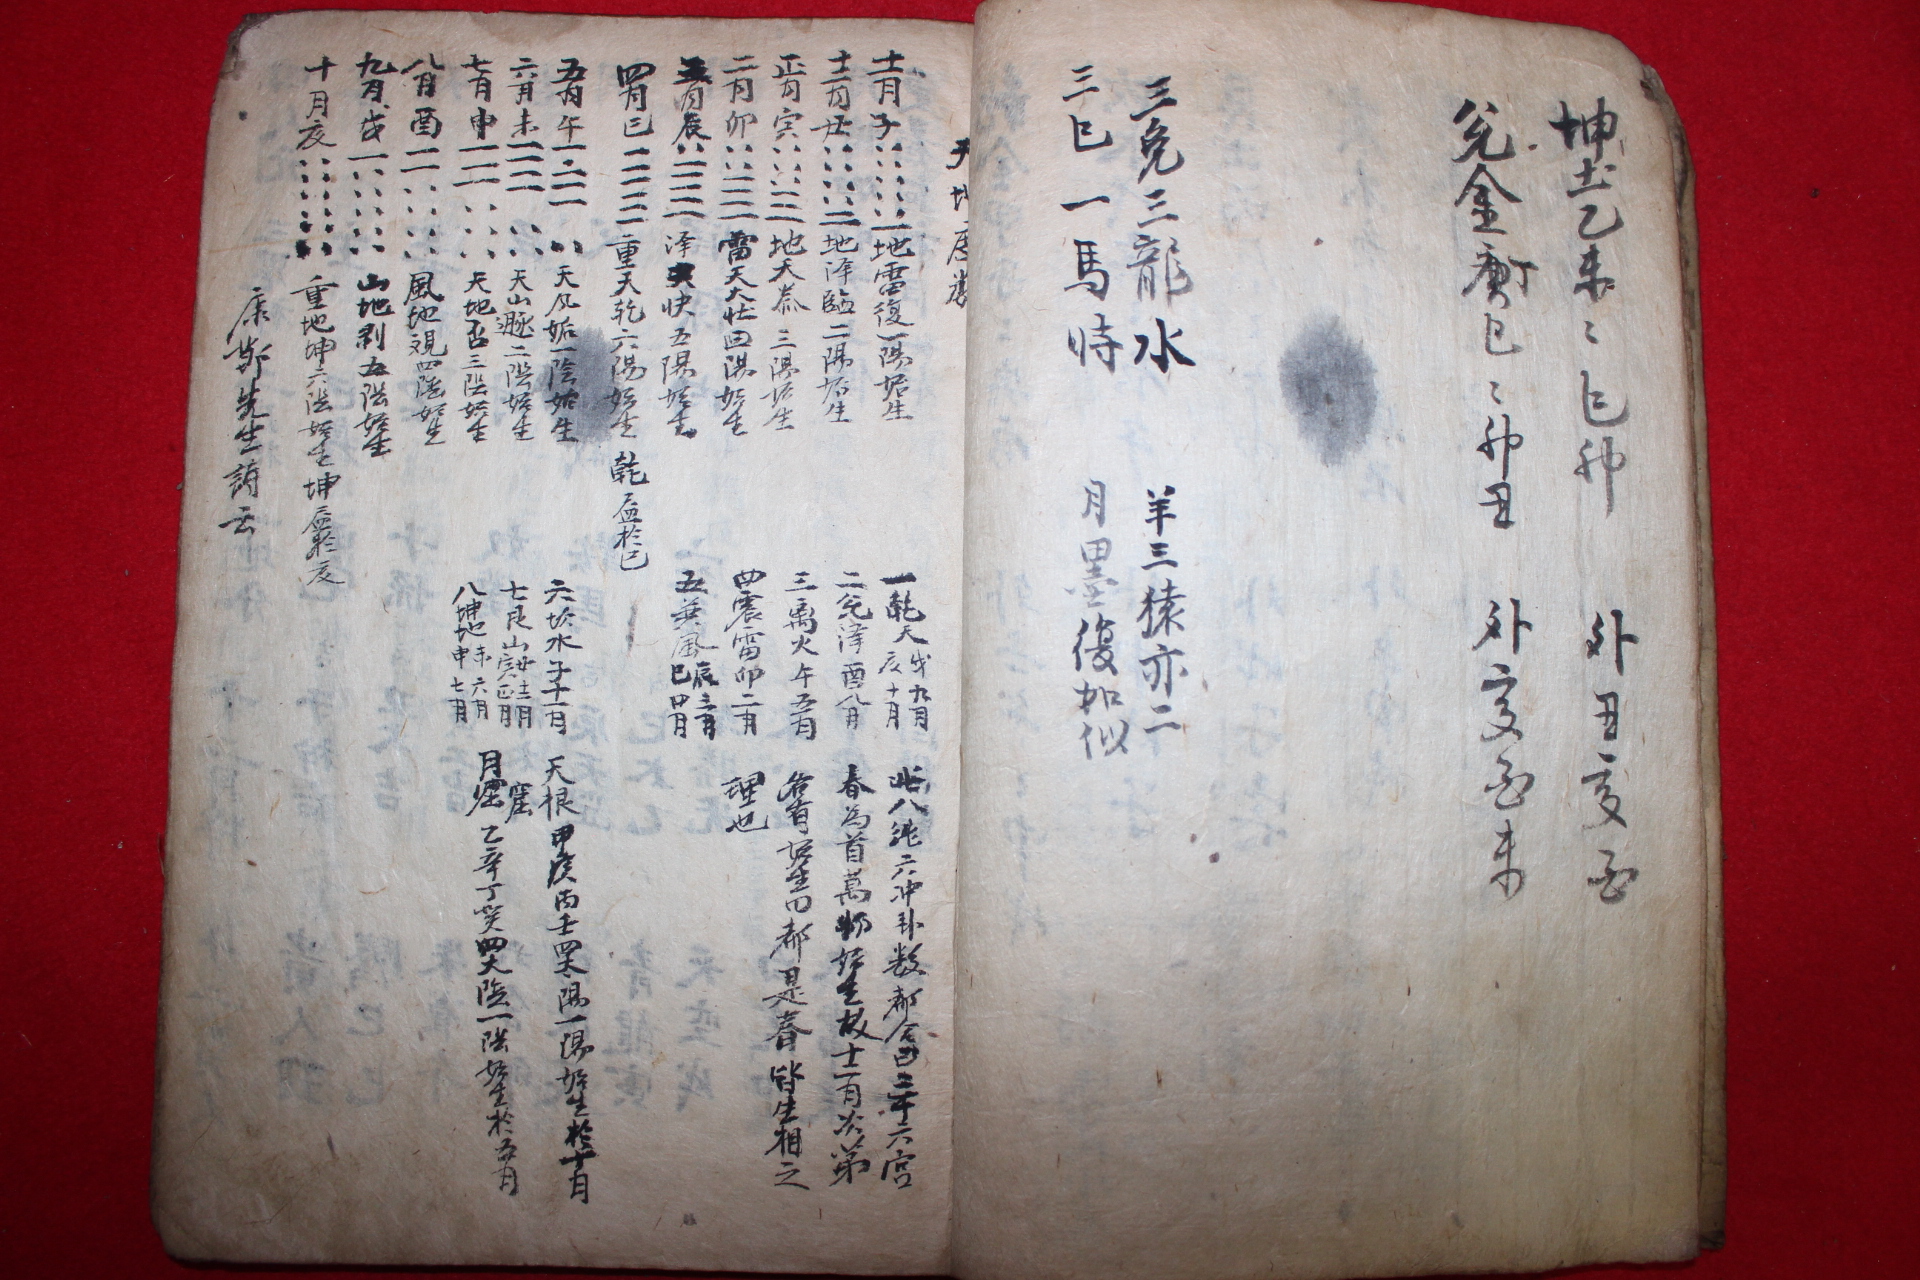 坤土乙未〻巳卯 外丑亥酉
兌金丁巳〻卯丑 外亥酉未
三兔三龍水 羊三猿亦二
三巳一馬時 月墨復如似
天地
十一月子 地雷復一陽始生
十二月丑 地澤臨二陽始生
正月寅 地天泰三陽始生
二月卯 雷天大壯四陽始生
三月辰 泽天快五陽始生
四月巳 重天乾六陽始生 乾盃於巳
五月午 天风姤一陰始生
六月未 天山遯二陰始生
七月申 天地否三陰始生
八月酉 風地观四陰始生
九月戌 山地剥五陰始生
十月亥 重地坤六陰始生坤盃於亥
康節先生詩云
一乾天戌九月亥十月
二兌澤酉八月
三离火午五月
四震雷卯二月
五巽風辰三月巳四月
六坎水子十一月
七艮山丑十二月寅正月
八坤地未六月申七月
此八純六冲卦数都合四三十六宮
春為首萬物始生故十一月次第
各有始生四都是春皆生相之
理也
天根甲庚丙壬四大陽一陽始生於十一月
月窟乙辛丁癸四大陰一陰始生於五月
窟